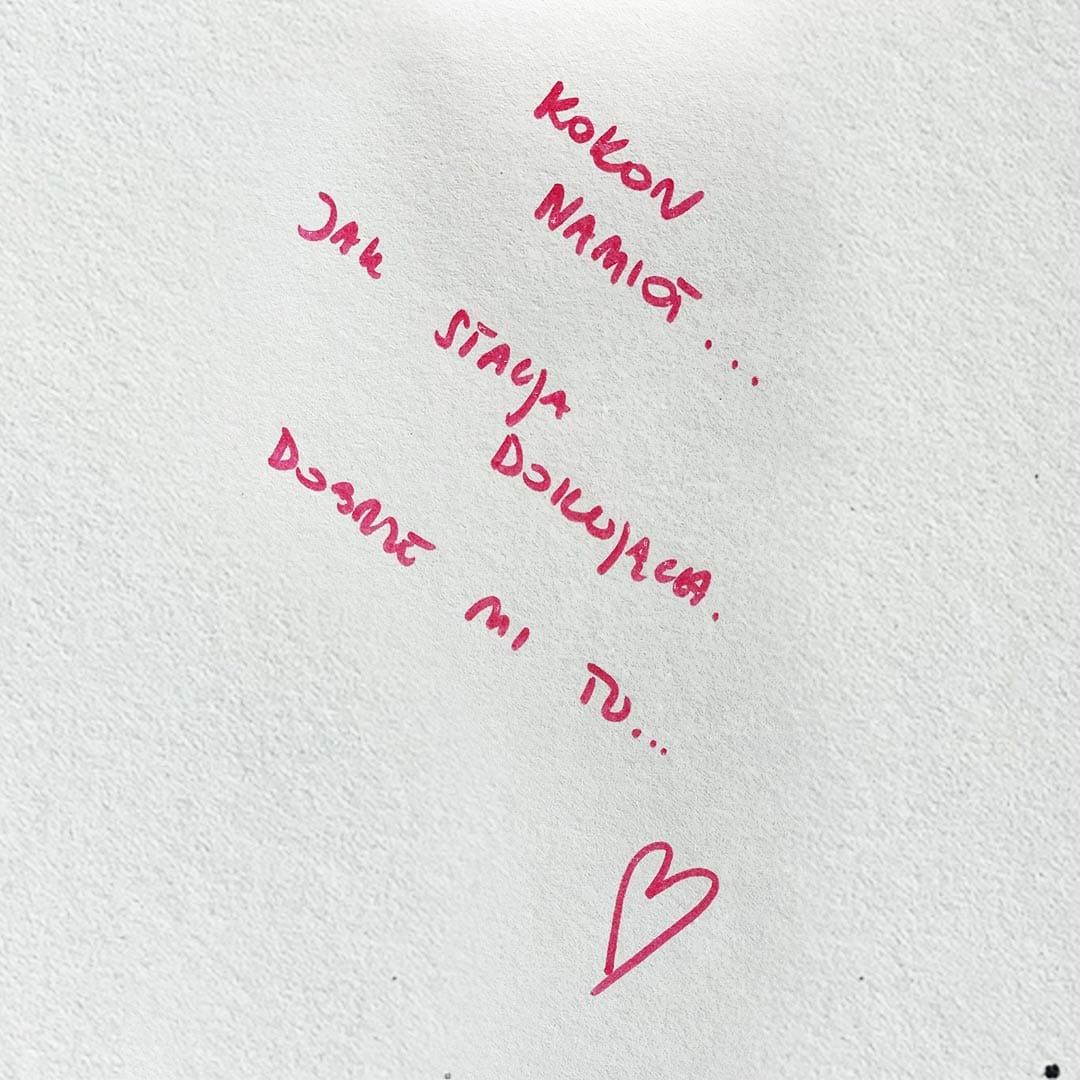 KOKON
NAMIOT...
JAK STACJA
DOKUJĄCA.
DOBRZE MI TU...